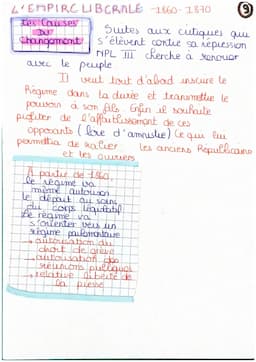 L'EMPIRE LIBERALE -1860-1870
9
Les Causes
Du
Changement
Suites aux critiques qui
s'élèvent contre sa répression
NPL III cherche à renouer
avec le peuple
Il veut tout d'abord inscrire le
Régime dans la durée et transmettre le
pouvoir à son fils Enfin il souhaite
profiter de l'affaiblissement de ces
opposants (lois d'amnistie) Ce qui lui
permettra de ralier les anciens Républicains
et les ouvriers
A partir de 1860
le régime va
même autoriser
le départ au soins
du corps législatif
Le régime va
s'orienter vers un
régime parlementaire
→ autorisation du
droit de grève
→ autorisation des
réunions publiques
→ relative liberté de
la presse